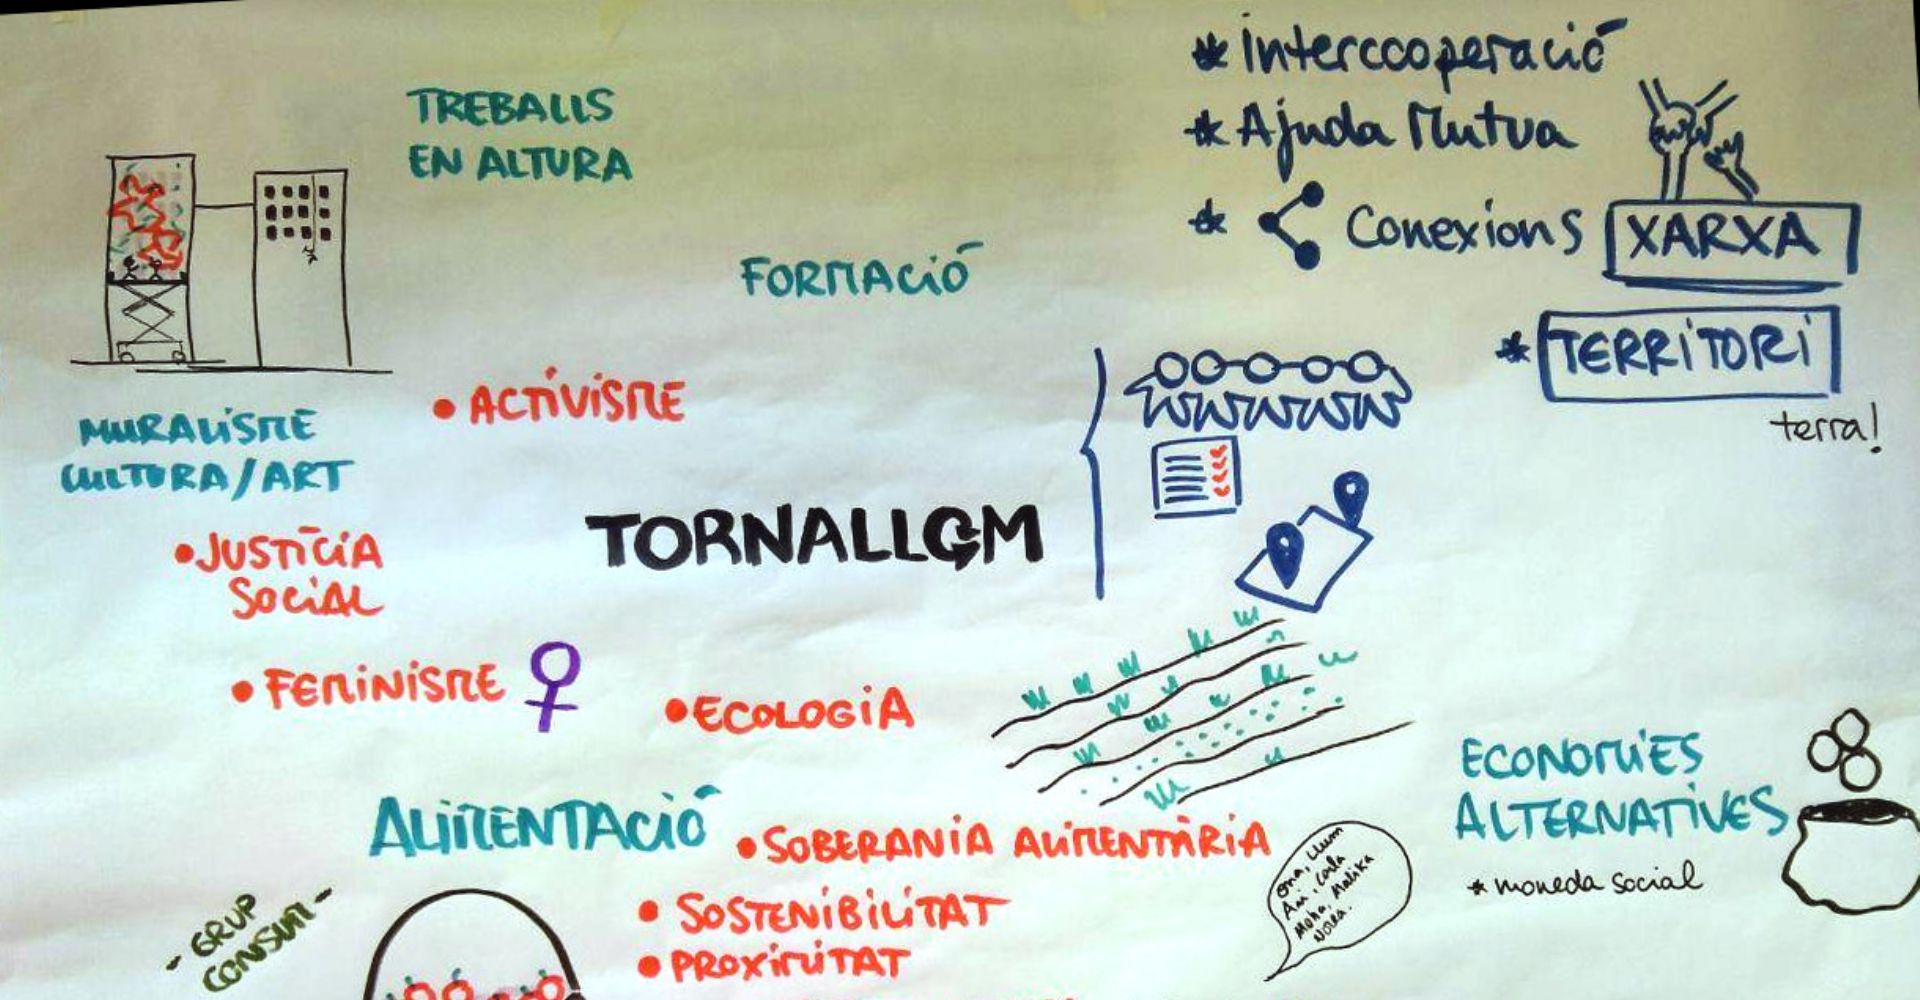 * Intercooperació
* Ajuda Mutua
* Conexions
XARXA
* TERRITORI
terra!
TREBALLS
EN ALTURA
FORMACIÓ
MURALISME
CULTURA/ART
• ACTIVISME
• JUSTÍCIA
SOCIAL
• FEMINISME
TORNALLOM
• ECOLOGIA
ALIMENTACIÓ
• SOBERANIA ALIMENTÀRIA
• SOSTENIBILITAT
• PROXIMITAT
- GRUP
CONSUM -
Ona, Llum
Ani, Carla
Moha, Malika
Noura.
ECONOMIES
ALTERNATIVES
* moneda social